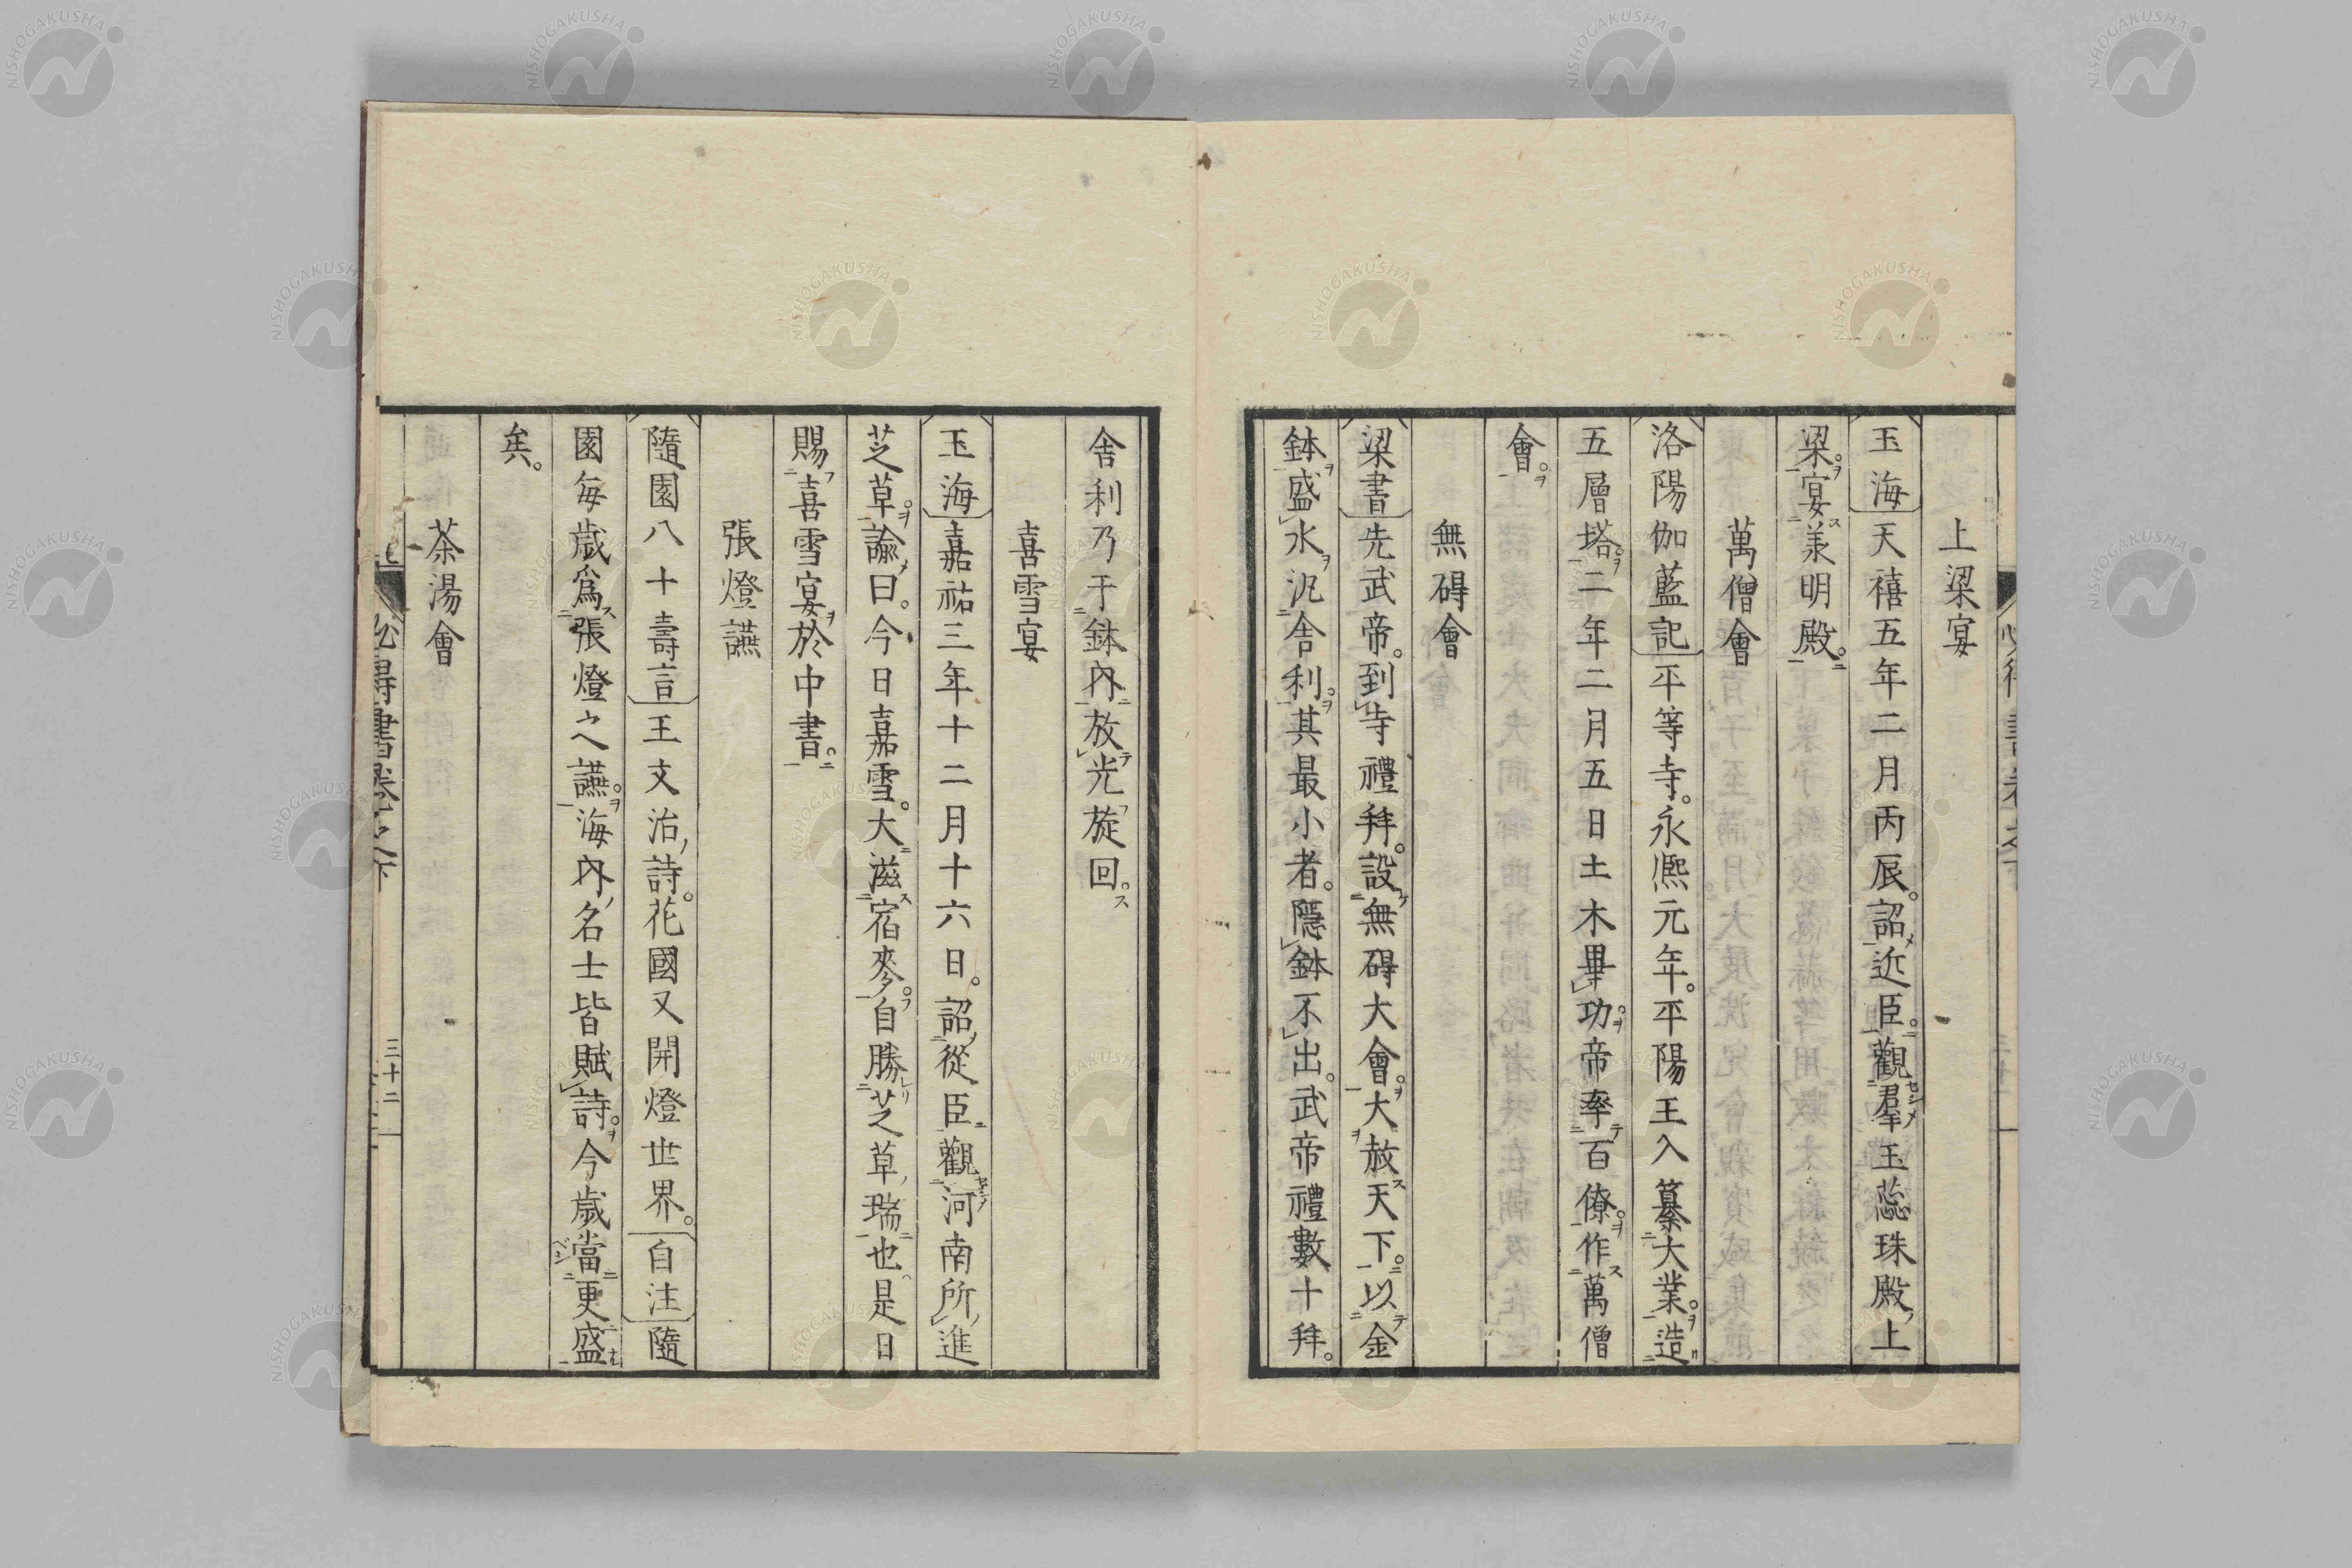 上梁宴
玉海天禧五年二月丙辰。詔近臣。觀羣玉蕊珠殿上
梁。宴羙明殿。
萬僧會
洛陽伽藍記平等寺。永熈元年。平陽王入纂大業。造
五層塔。二年二月五日土木畢功。帝率百僚。作萬僧
會。
無碍會
梁書先武帝。到寺禮拜。設無碍大會。大赦天下。以金
鉢盛水汎舎利。其最小者。隱鉢不出。武帝禮數十拜。
舎利乃于鉢內放光旋回。
喜雪宴
玉海嘉祐三年十二月十六日。詔從臣觀河南所進
芝草。諭曰。今日嘉雪。大滋宿麥。自勝芝草瑞也是日
賜喜雪宴於中書。
張燈讌
隨園八十壽言王文治詩。花國又開燈世界。自注隨
園毎歳爲張燈之讌。海內名士皆賦詩。今歳當更盛
矣。
茶湯會
三十二
NISHOGAKUSHA